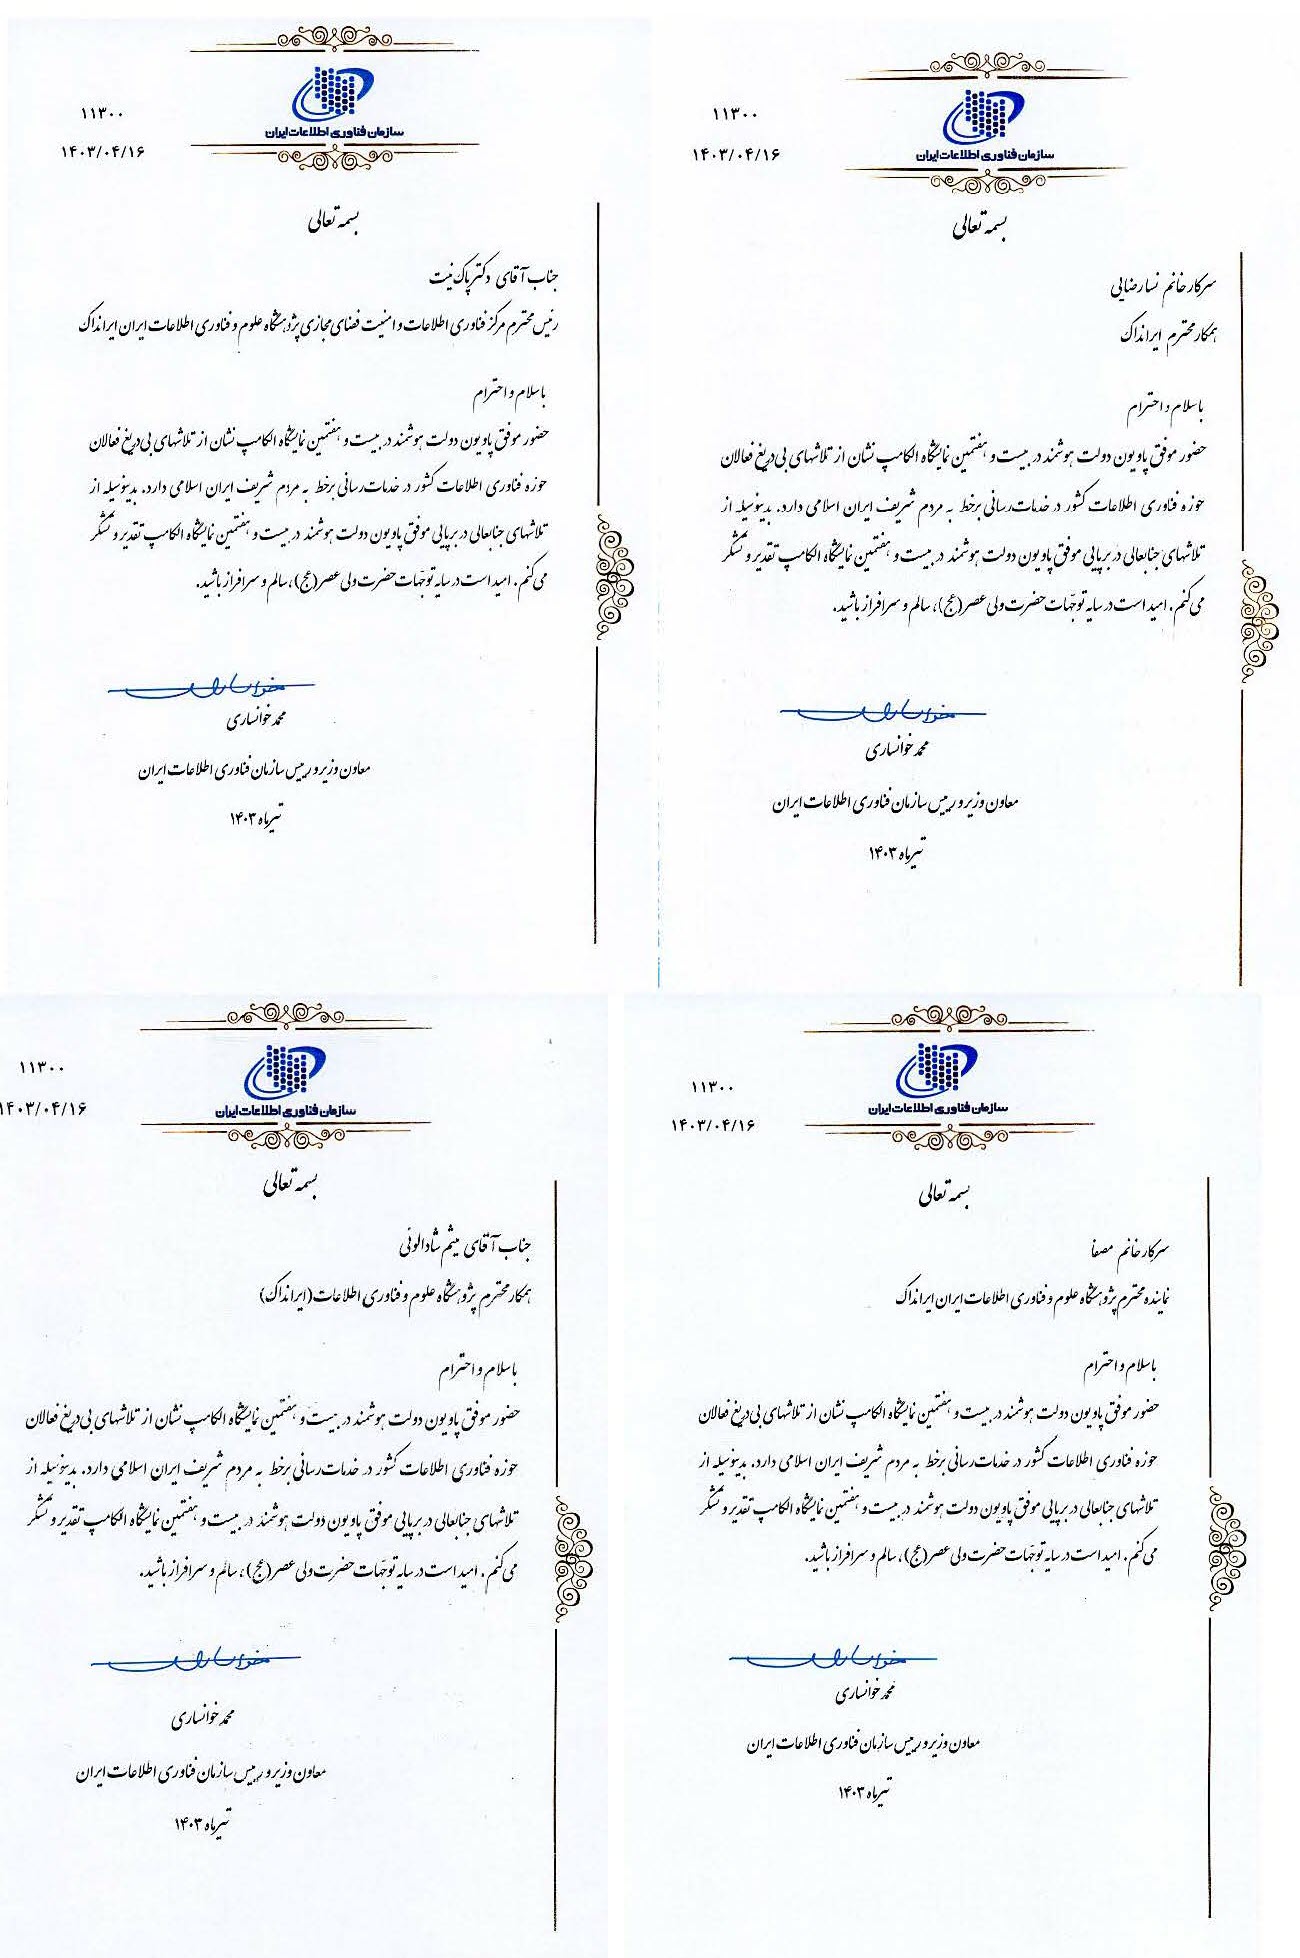 سازمان فناوری اطلاعات ایران
۱۱۳۰۰
۱۴۰۳/۰۴/۱۶
بسمه تعالی
سرکار خانم نسا رضایی
همکار محترم ایرانداک
با سلام و احترام
حضور موفق پاویون دولت هوشمند در بیست و هفتمین نمایشگاه الکامپ نشان از تلاشهای بی‌دریغ فعالان
حوزه فناوری اطلاعات کشور در خدمات‌رسانی برخط به مردم شریف ایران اسلامی دارد. بدینوسیله از
تلاشهای جنابعالی در برپایی موفق پاویون دولت هوشمند در بیست و هفتمین نمایشگاه الکامپ تقدیر و تشکر
می‌کنم. امید است در سایه توجّهات حضرت ولی عصر(عج)، سالم و سرافراز باشید.
محمد خوانساری
معاون وزیر و رییس سازمان فناوری اطلاعات ایران
تیرماه ۱۴۰۳
سازمان فناوری اطلاعات ایران
۱۱۳۰۰
۱۴۰۳/۰۴/۱۶
بسمه تعالی
جناب آقای دکتر پاک نیت
رئیس محترم مرکز فناوری اطلاعات و امنیت فضای مجازی پژوهشگاه علوم و فناوری اطلاعات ایران ایرانداک
با سلام و احترام
حضور موفق پاویون دولت هوشمند در بیست و هفتمین نمایشگاه الکامپ نشان از تلاشهای بی‌دریغ فعالان
حوزه فناوری اطلاعات کشور در خدمات‌رسانی برخط به مردم شریف ایران اسلامی دارد. بدینوسیله از
تلاشهای جنابعالی در برپایی موفق پاویون دولت هوشمند در بیست و هفتمین نمایشگاه الکامپ تقدیر و تشکر
می‌کنم. امید است در سایه توجّهات حضرت ولی عصر(عج)، سالم و سرافراز باشید.
محمد خوانساری
معاون وزیر و رییس سازمان فناوری اطلاعات ایران
تیرماه ۱۴۰۳
سازمان فناوری اطلاعات ایران
۱۱۳۰۰
۱۴۰۳/۰۴/۱۶
بسمه تعالی
سرکار خانم مصفا
نماینده محترم پژوهشگاه علوم و فناوری اطلاعات ایران ایرانداک
با سلام و احترام
حضور موفق پاویون دولت هوشمند در بیست و هفتمین نمایشگاه الکامپ نشان از تلاشهای بی‌دریغ فعالان
حوزه فناوری اطلاعات کشور در خدمات‌رسانی برخط به مردم شریف ایران اسلامی دارد. بدینوسیله از
تلاشهای جنابعالی در برپایی موفق پاویون دولت هوشمند در بیست و هفتمین نمایشگاه الکامپ تقدیر و تشکر
می‌کنم. امید است در سایه توجّهات حضرت ولی عصر(عج)، سالم و سرافراز باشید.
محمد خوانساری
معاون وزیر و رییس سازمان فناوری اطلاعات ایران
تیرماه ۱۴۰۳
سازمان فناوری اطلاعات ایران
۱۱۳۰۰
۱۴۰۳/۰۴/۱۶
بسمه تعالی
جناب آقای میثم شادالوئی
همکار محترم پژوهشگاه علوم و فناوری اطلاعات(ایرانداک)
با سلام و احترام
حضور موفق پاویون دولت هوشمند در بیست و هفتمین نمایشگاه الکامپ نشان از تلاشهای بی‌دریغ فعالان
حوزه فناوری اطلاعات کشور در خدمات‌رسانی برخط به مردم شریف ایران اسلامی دارد. بدینوسیله از
تلاشهای جنابعالی در برپایی موفق پاویون دولت هوشمند در بیست و هفتمین نمایشگاه الکامپ تقدیر و تشکر
می‌کنم. امید است در سایه توجّهات حضرت ولی عصر(عج)، سالم و سرافراز باشید.
محمد خوانساری
معاون وزیر و رییس سازمان فناوری اطلاعات ایران
تیرماه ۱۴۰۳